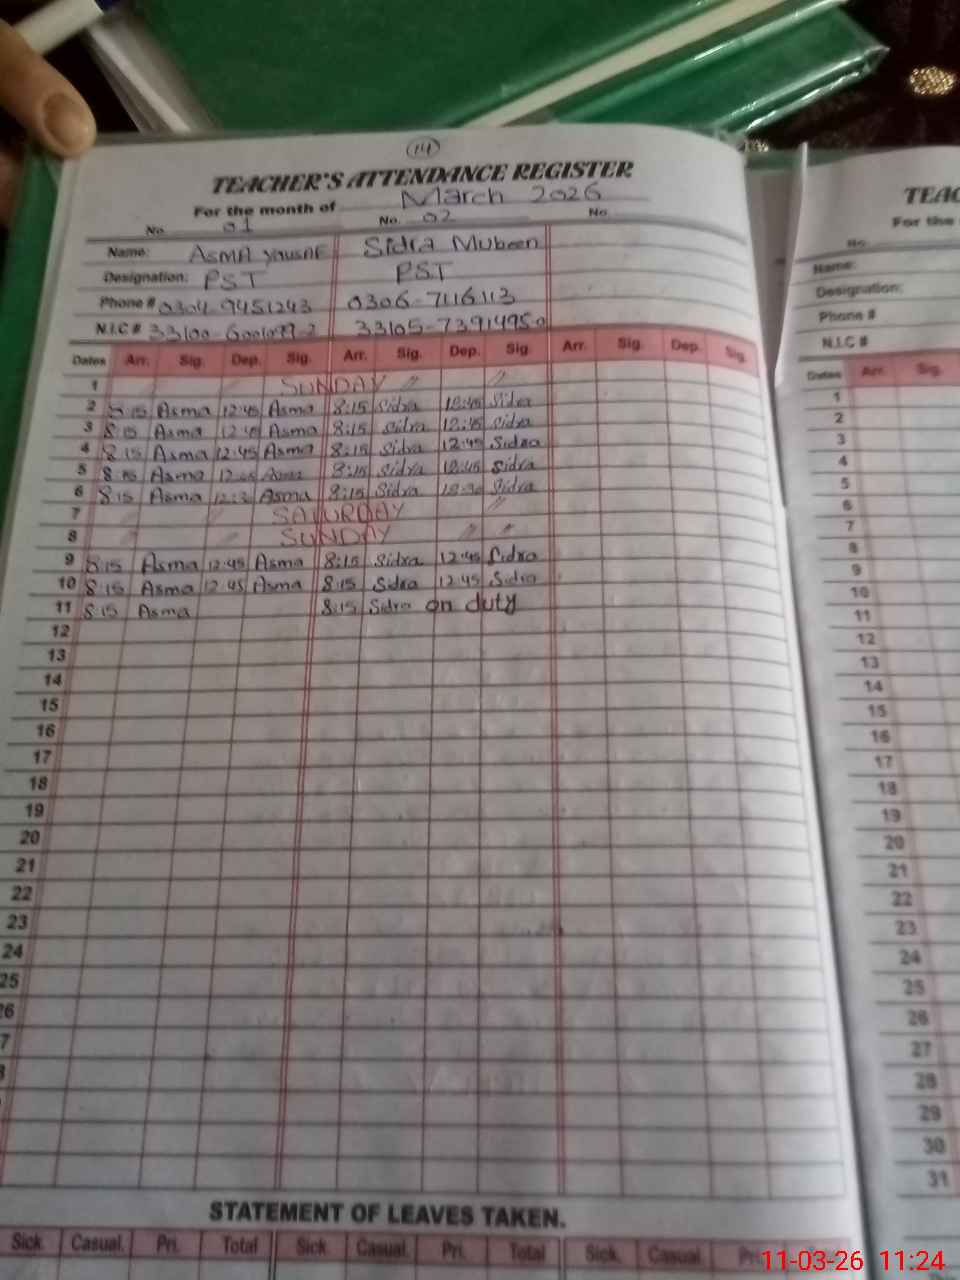 14
TEACHER'S ATTENDANCE REGISTER
For the month of March 2026
No. 01 No. 02 No.
Name: Asma Yousaf Sidra Mubeen
Designation: PST PST
Phone # 0304-9451243 0306-7116113
N.I.C #
Dates Arr. Sig. Dep. Sig. Arr. Sig. Dep. Sig. Arr. Sig. Dep. Sig.
1 SUNDAY " "
2 8:15 Asma 12:45 Asma 8:15 Sidra 12:45 Sidra
3 8:15 Asma 12:45 Asma 8:15 Sidra 12:45 Sidra
4 8:15 Asma 12:45 Asma 8:15 Sidra 12:45 Sidra
5 8:15 Asma 12:45 Asma 8:15 Sidra 12:45 Sidra
6 8:15 Asma 12:30 Asma 8:15 Sidra 12:30 Sidra
7 SATURDAY "
8 SUNDAY " "
9 8:15 Asma 12:45 Asma 8:15 Sidra 12:45 Sidra
10 8:15 Asma 12:45 Asma 8:15 Sidra 12:45 Sidra
11 8:15 Asma 8:15 Sidra on duty
12
13
14
15
16
17
18
19
20
21
22
23
24
25
26
7
STATEMENT OF LEAVES TAKEN.
Sick. Casual. Pri. Total Sick. Casual. Pri. Total Sick. Casual. Pri.
TEAC
For the
No.
Name:
Designation:
Phone #
N.I.C #
Dates Arr. Sig.
1
2
3
4
5
6
7
8
9
10
11
12
13
14
15
16
17
18
19
20
21
22
23
24
25
26
27
28
29
30
31
11-03-26 11:24